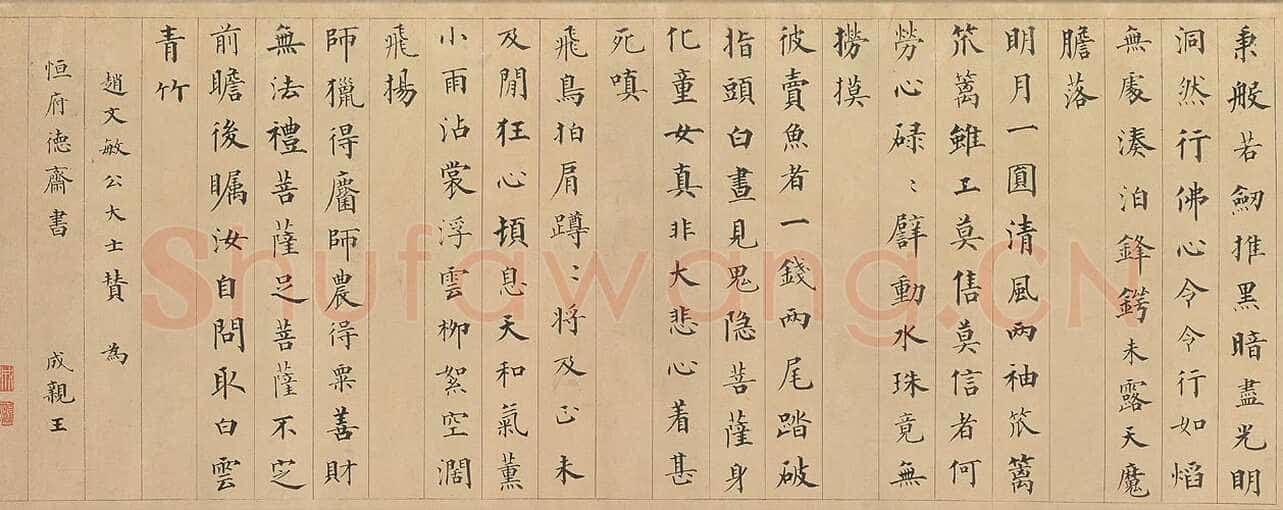 秉般若劒推黑暗盡光明
洞然行佛心令令行如熖
無處湊泊鋒鍔未露天魔
膽落
明月一圓清風兩袖笊篱
笊篱雖工莫售莫信者何
勞心碌〻劈動水珠竟無
撈摸
彼賣魚者一錢兩尾踏破
指頭白晝見鬼隐菩薩身
化童女真非大悲心着甚
死嗔
飛鳥拍肩蹲〻將及正未
及閒狂心頓息天和氣薰
小雨沾裳浮雲柳絮空濶
飛揚
師獵得麕師農得粟善財
無法禮菩薩足菩薩不定
前瞻後矚汝自問取白雲
青竹
趙文敏公大士賛 為
恒府德齋書 成親王
Shufawang.CN